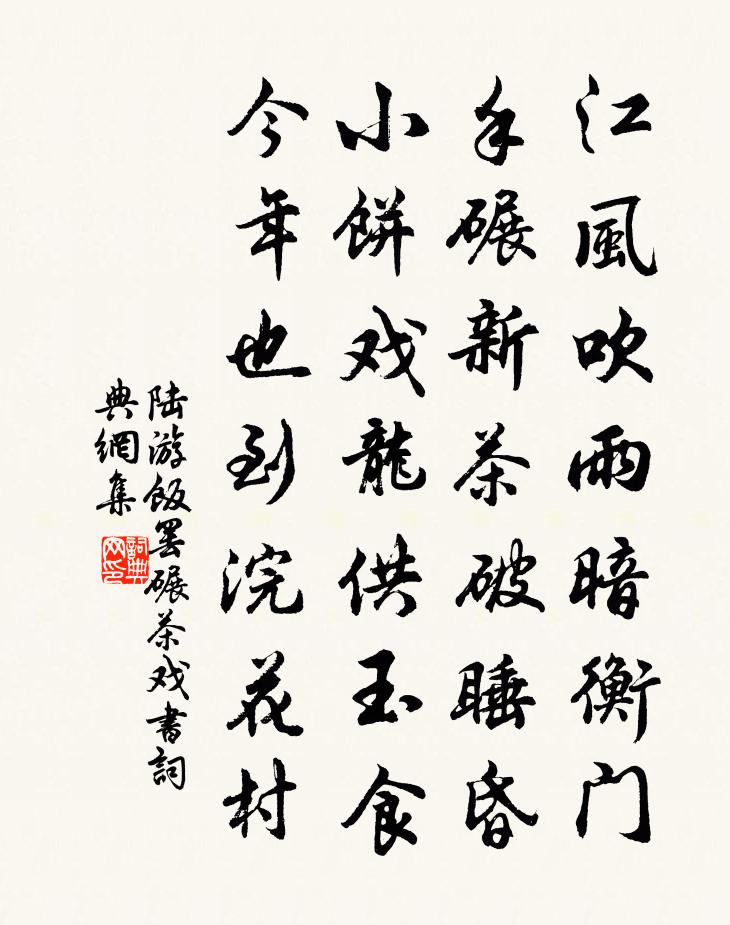 江風吹雨暗衡门
手碾新茶破睡昏
小餅戏龍供玉食
今年也到浣花村
陆游飯罢碾茶戏書詞
典網集
詞典
网印